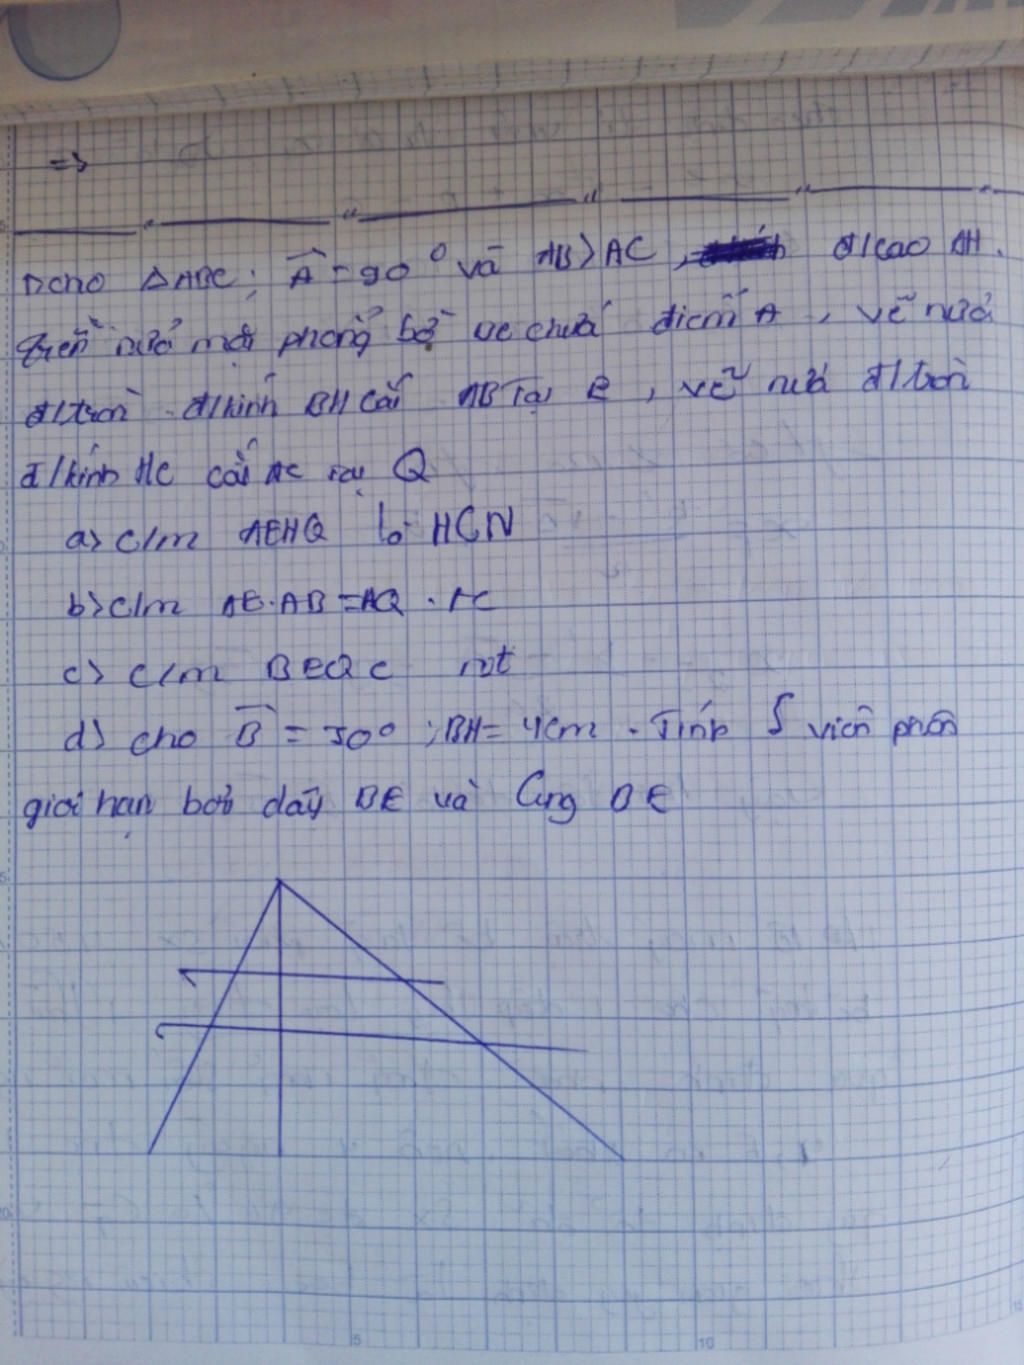 =>
1) cho △ABC ; Â = 90° và AB > AC , đ/cao AH .
trên nửa mặt phẳng bờ BC chứa điểm A , vẽ nửa
đ/tròn đ/kính BH cắt AB Tại E , vẽ nửa đ/tròn
đ/kính HC cắt AC tại Q
a) c/m AEHQ là HCN
b) c/m AE.AB = AQ . AC
c) c/m BEQC nột
d) cho B̂ = 30° ; BH = 4cm . Tính S viên phân
giới hạn bởi dây BE và Cung BE
5
10